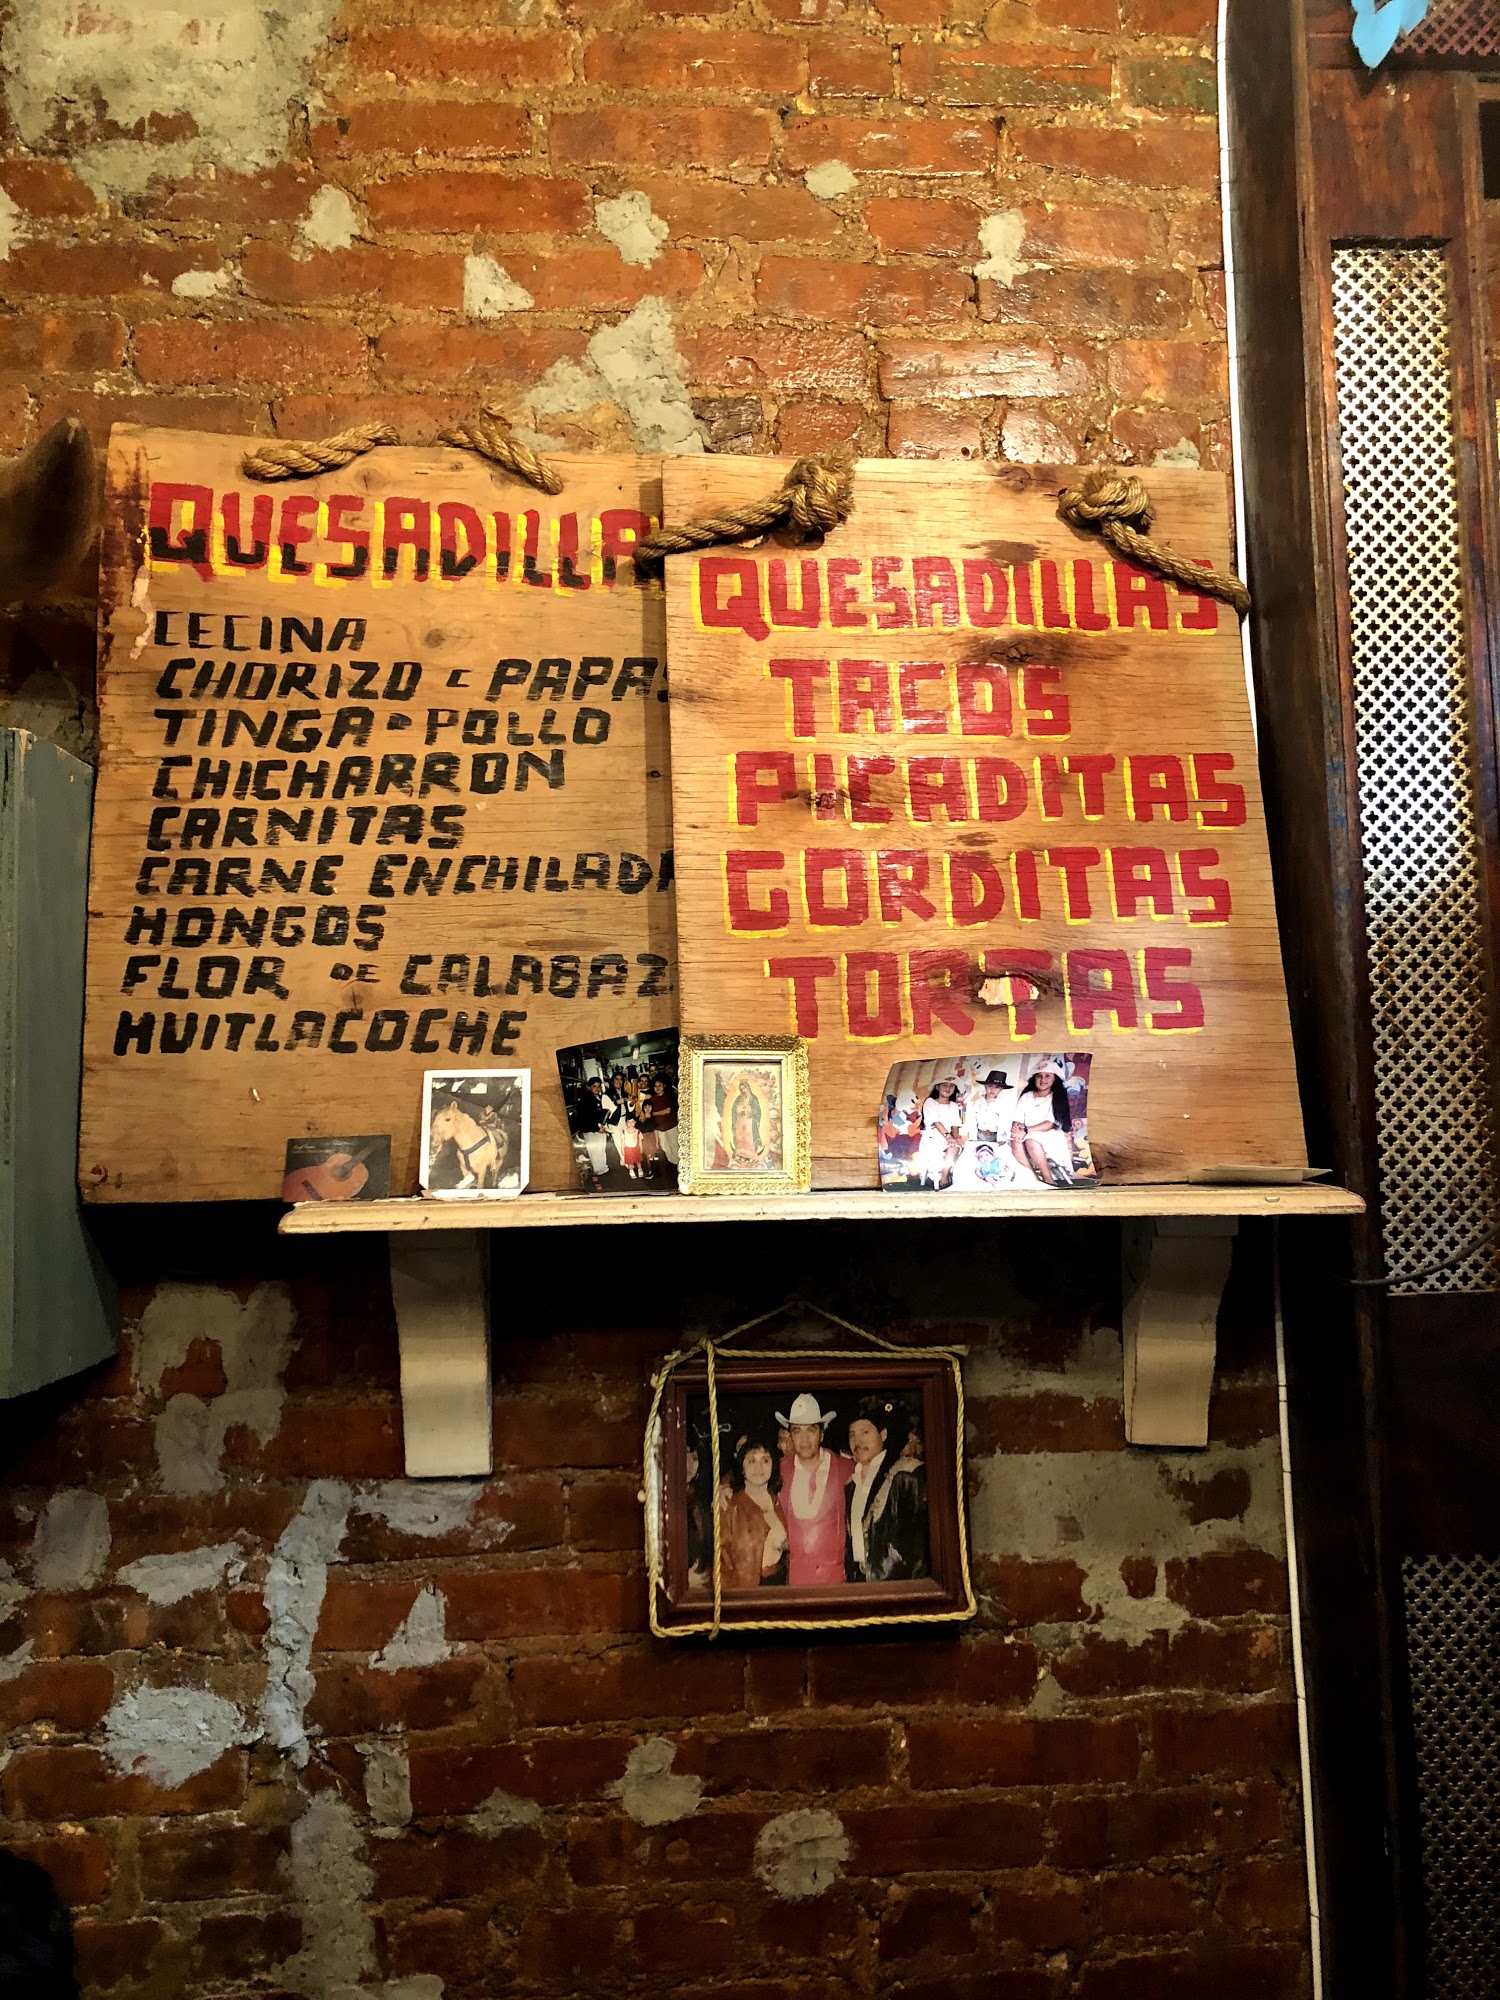 QUESADILLA
CECINA
CHORIZO C PAPAS
TINGA D POLLO
CHICHARRON
CARNITAS
CARNE ENCHILADA
HONGOS
FLOR DE CALABAZ
HUITLACOCHE
QUESADILLAS
TACOS
PICADITAS
GORDITAS
TORTAS